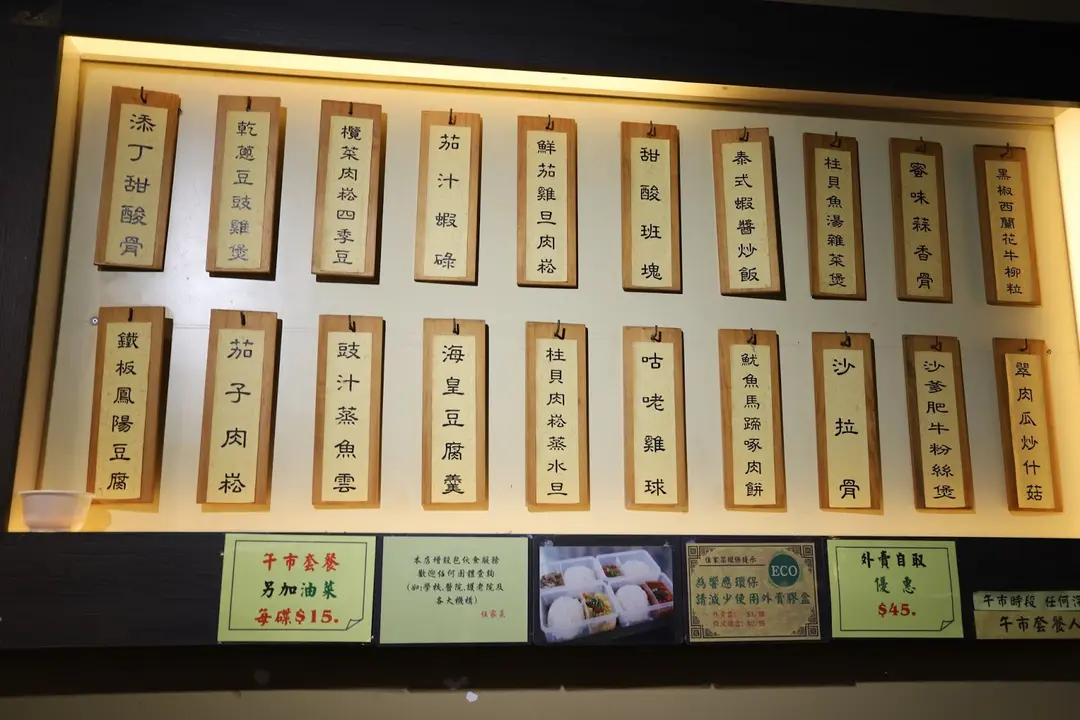 添丁甜酸骨
乾蔥豆豉雞煲
欖菜肉崧四季豆
茄汁蝦碌
鮮茄雞旦肉崧
甜酸班塊
泰式蝦醬炒飯
桂貝魚湯雜菜煲
蜜味蒜香骨
黑椒西蘭花牛柳粒
鐵板鳳陽豆腐
茄子肉崧
豉汁蒸魚雲
海皇豆腐羹
桂貝肉崧蒸水旦
咕咾雞球
魷魚馬蹄啄肉餅
沙拉骨
沙爹肥牛粉絲煲
翠肉瓜炒什菇
午市套餐
另加油菜
每碟$15.
本店增設包伙食服務
歡迎任何團體查詢
(如:學校,醫院,護老院及
各大機構)
住家菜
住家菜環保提示
ECO
為響應環保
請減少使用外賣膠盒
外賣自取
優惠
$45.
午市時段 任何
午市套餐